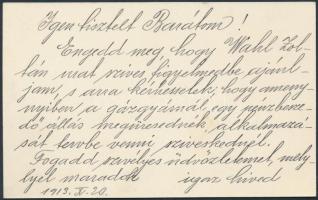 Igen tisztelt Barátom!
Engedd meg hogy Wahl Zol-
tán urat szives figyelmedbe ajánl-
jam, s arra kérhesselek, hogy ameny-
nyiben a gázgyásnál egy pénzbesze-
dő állás megüresednék, alkalmazá-
sát tervbe venni sziveskednél.
Fogadd szivélyes üdvözletemet, mely-
lyel maradok igaz hived
1913. XI. 20.